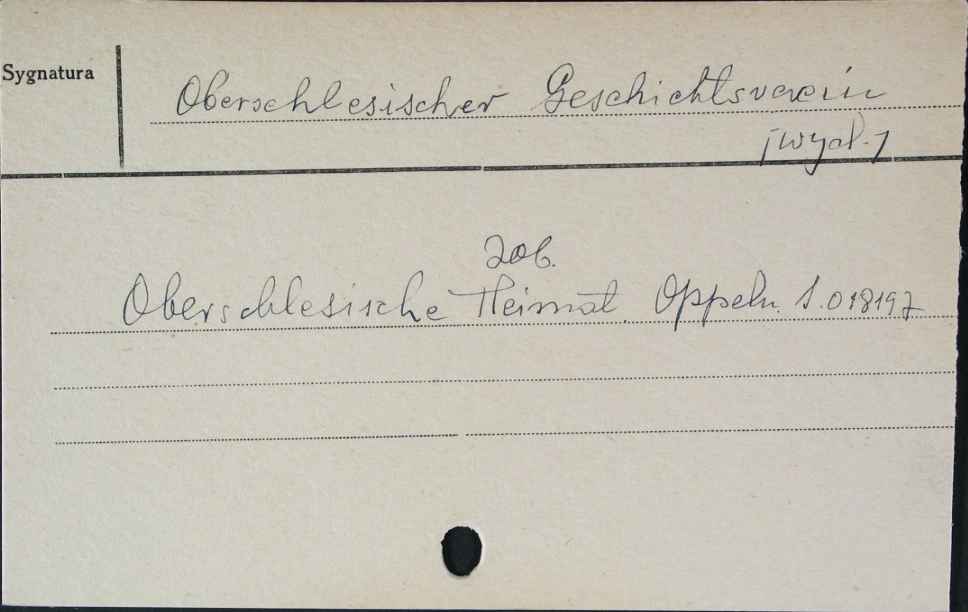 Sygnatura
Oberschlesischer Geschichtsverein
[wyd.]
zob.
Oberschlesische Heimat. Oppeln. S.018197